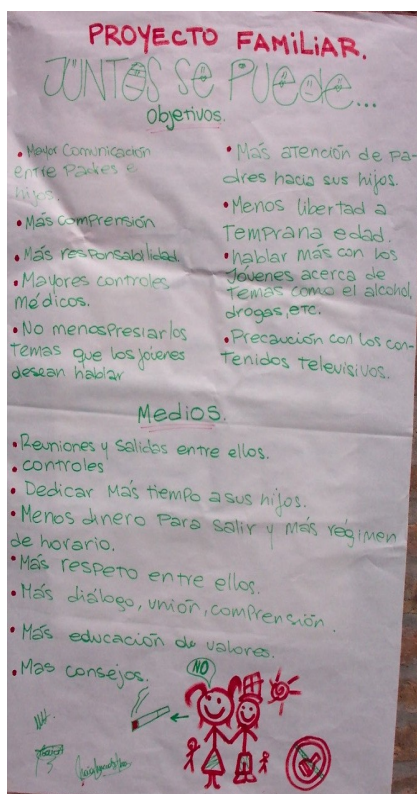 PROYECTO FAMILIAR.
JUNTOS SE PUEDE...
Objetivos.
• Mayor Comunicación
entre Padres e
hijos.
• Más comprensión
• Más responsabilidad.
• Mayores controles
médicos.
• No menospresiar los
temas que los jóvenes
desean hablar
• Más atención de pa-
dres hacia sus hijos.
• Menos libertad a
temprana edad.
• hablar más con los
jóvenes acerca de
temas como el alcohol,
drogas, etc.
• Precaución con los con-
tenidos televisivos.
Medios.
• Reuniones y salidas entre ellos.
• controles
• Dedicar Más tiempo a sus hijos.
• Menos dinero para salir y más régimen
de horario.
• Más respeto entre ellos.
• Más diálogo, unión, comprensión.
• Más educación de valores.
• Mas consejos.
NO